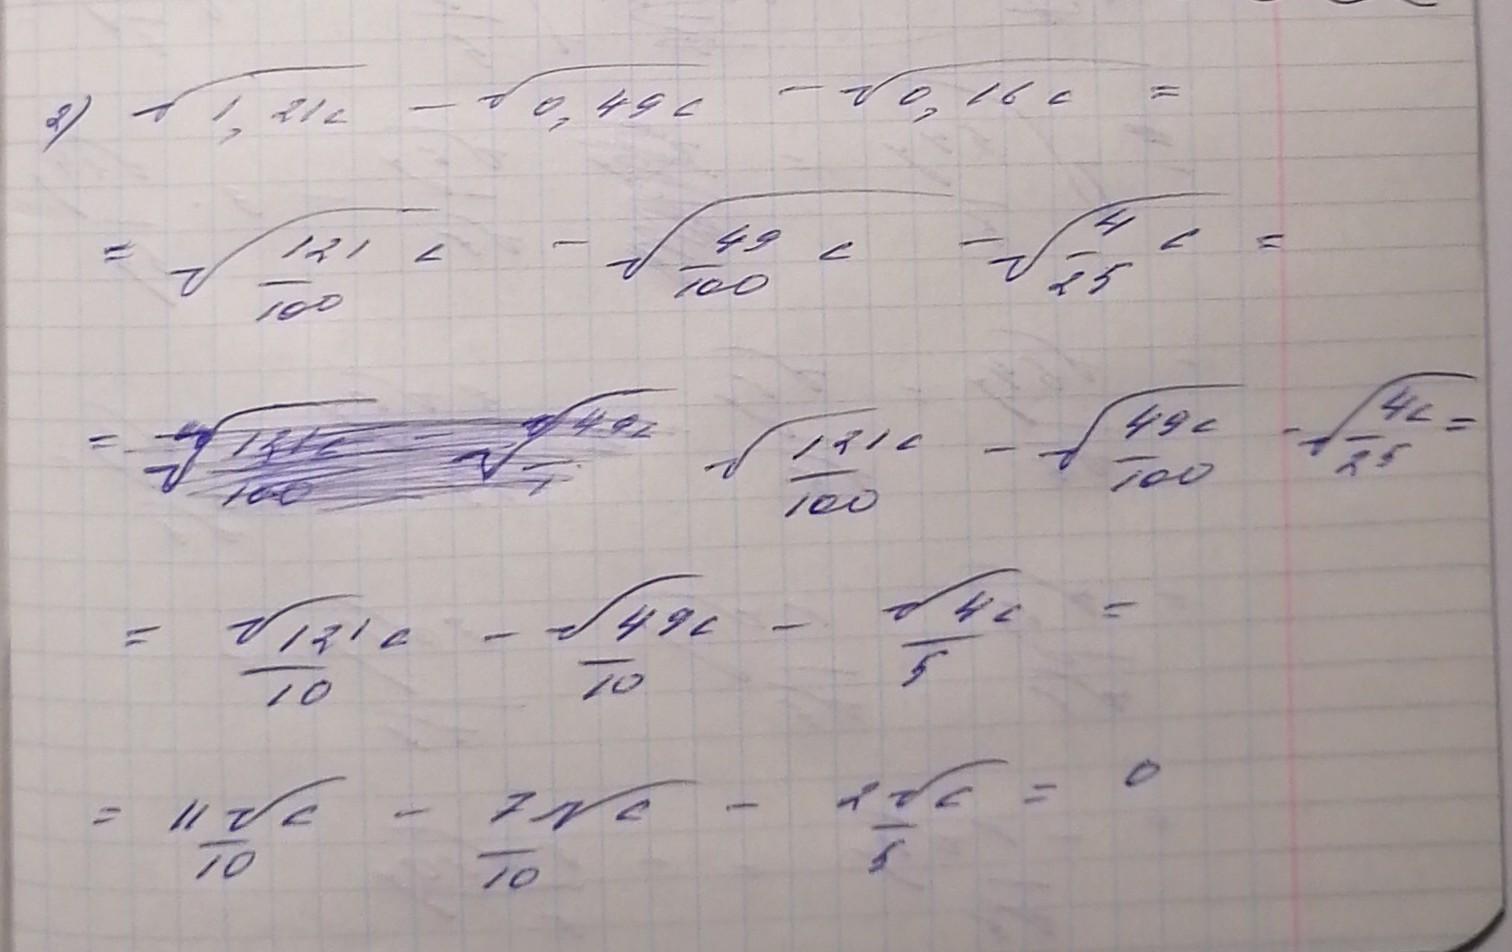 2) √1,21c - √0,49c - √0,16c =
= √(121/100 c) - √(49/100 c) - √(4/25 c) =
= √(121c/100) - √(49c/100) - √(4c/25) =
= √121c/10 - √49c/10 - √4c/5 =
= 11√c/10 - 7√c/10 - 2√c/5 = 0